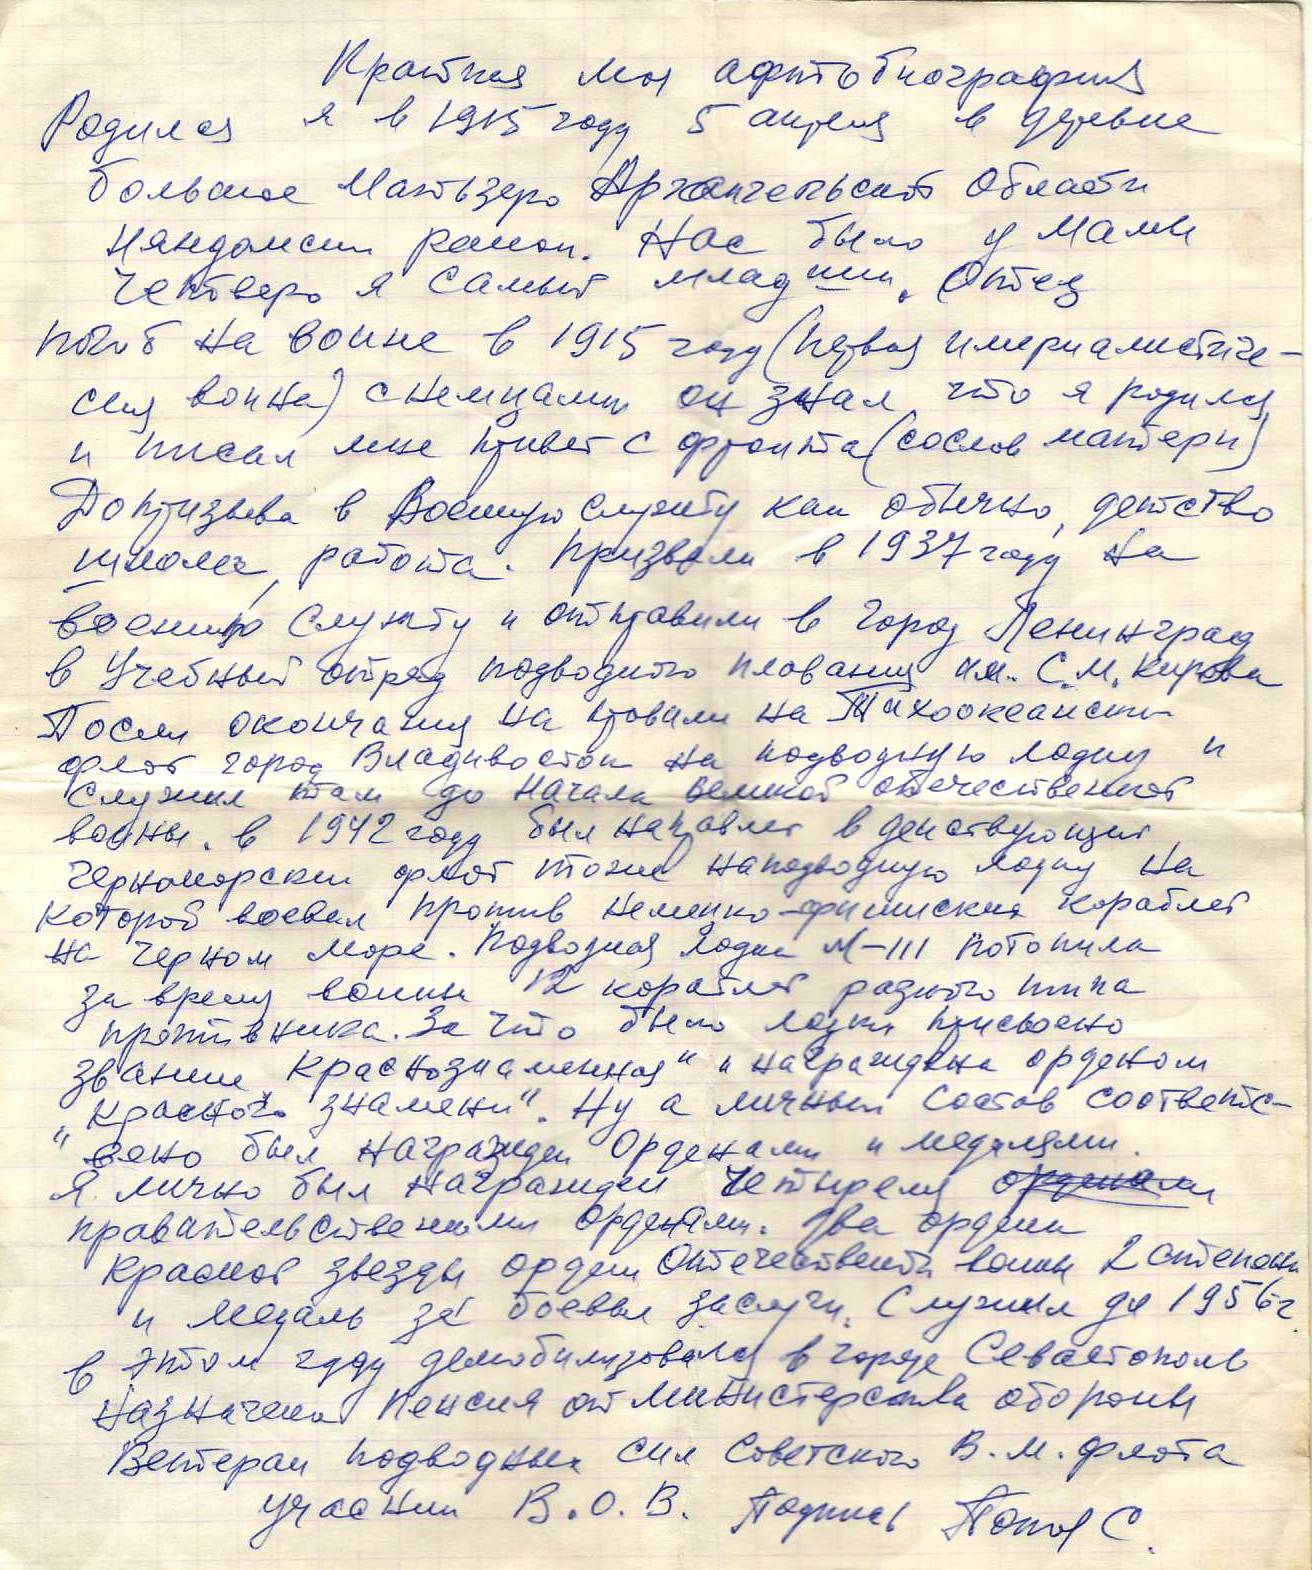 Краткая моя афтобиография
Родился я в 1915 году 5 апреля в деревне
большое Мантзеро Архангельской области
няндомски район. Нас было у Мамы
четверо я самый младший. Отец
погиб на войне в 1915 году (первая империалистиче-
ская война) с немцами он знал что я родился
и писал мне привет с фронта (сослов матери)
До призыва в Военную службу как обычно, детство
школа, работа. Призвали в 1937 году на
военную службу и отправили в город Ленинград
в Учебный отряд подводного плавания им. С.М. Кирова
После окончания направили на Тихоокеански
флот город Владивосток на подводную лодку и
служил там до начала великой отечественной
войны. в 1942 году был направлен в действующий
черноморский флот тоже на подводную лодку на
которой воевал против немецко-фашиских кораблей
на Черном море. Подводная лодка М-111 потопила
за время войны 12 кораблей разного типа
противника. За что было лодки присвоено
звание Краснознаменная" и награждена орденом
"Красного знамени". Ну а личный состав соответс-
вено был награжден Орденами и медалями.
Я лично был награжден четыремя орденами
правительствеными орденами. два ордена
Красной звезды орден Отечественой войны 2 степени
и медаль за боевые заслуги. Служил до 1956 г
в этом году демобилизовался в городе Севастополь
Назначена пенсия от министерства обороны
Ветеран подводных сил советского В.М. флота
участник В.О.В. Подпись Попов С.